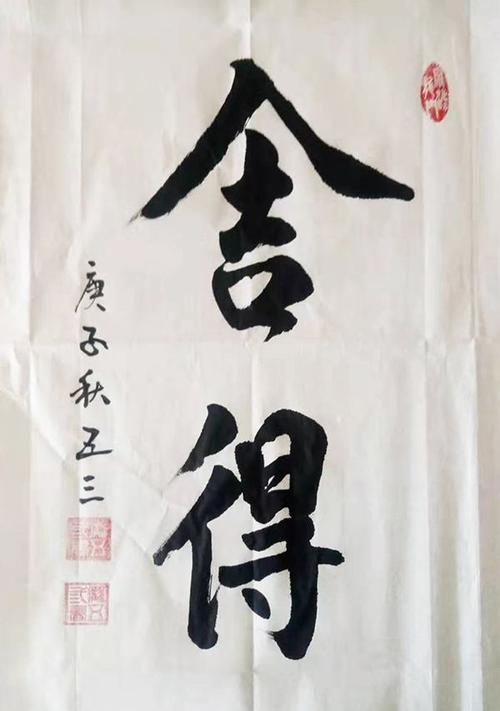 舍得
庚子秋五三